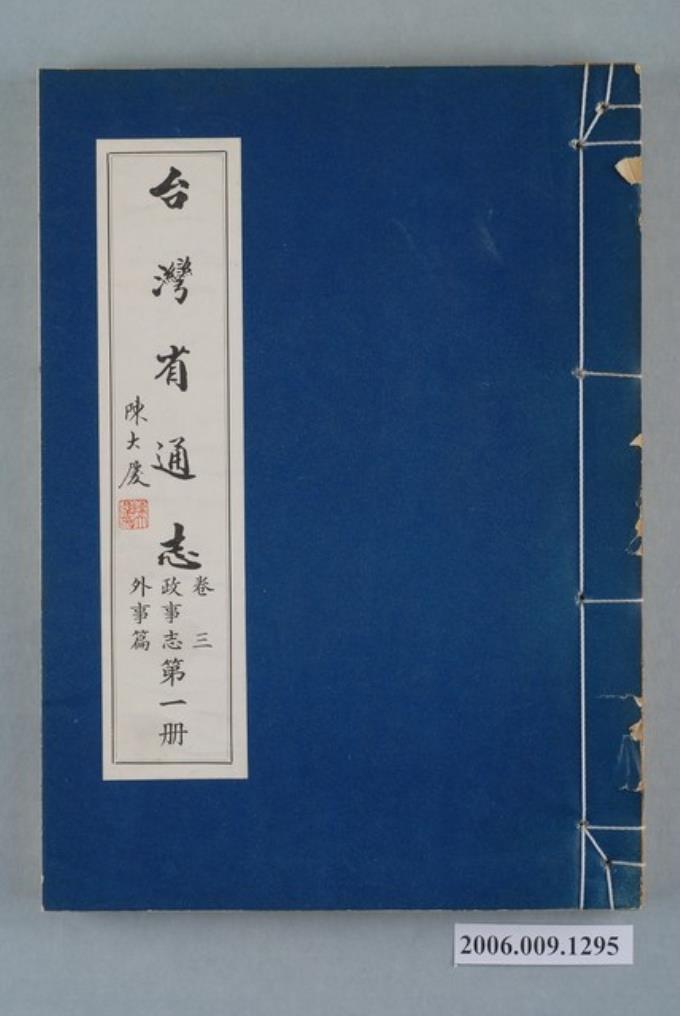 台灣省通志
卷三
政事志第一册
外事篇
陳大慶
2006.009.1295